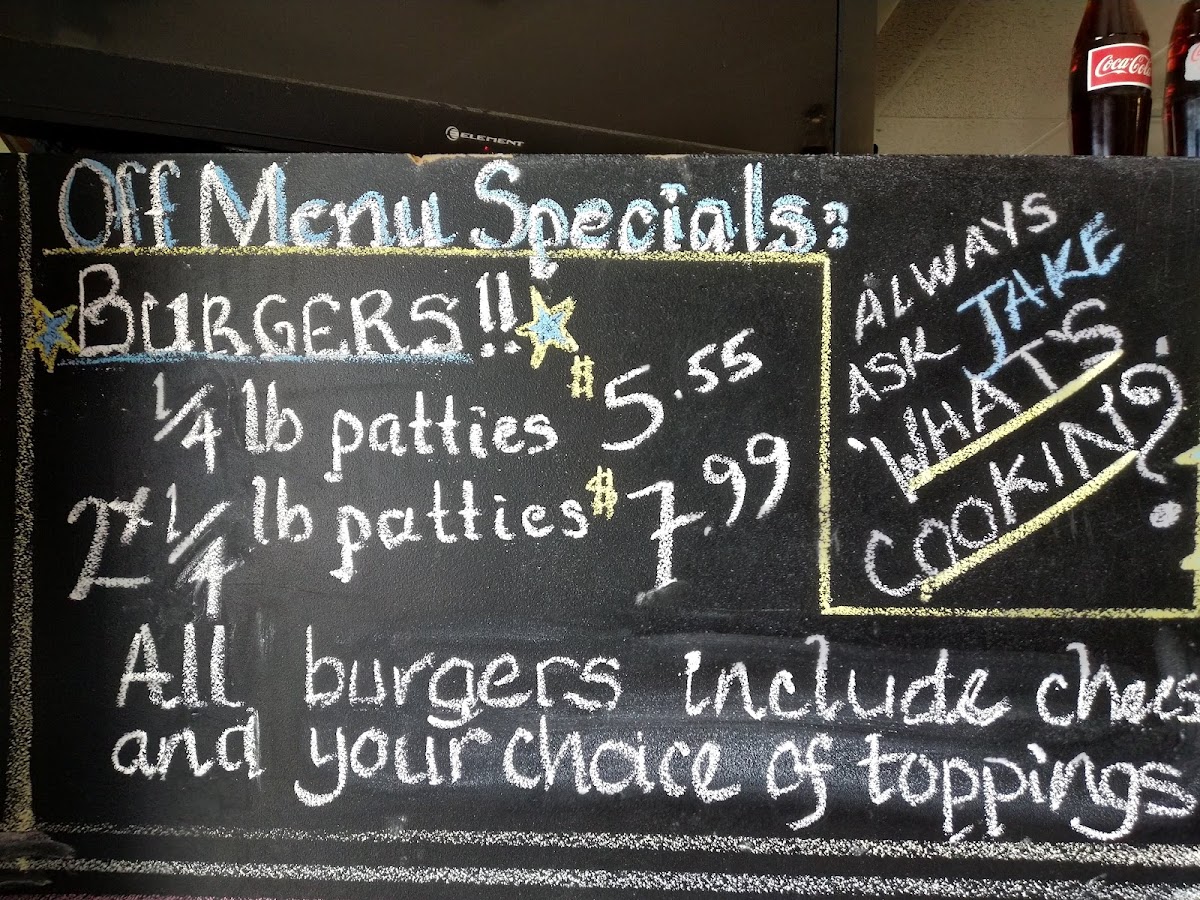 Coca-Cola
ELEMENT
Off Menu Specials:
BURGERS!!
1/4 lb patties $5.55
2x 1/4 lb patties $7.99
All burgers include chees
and your choice of toppings
ALWAYS
ASK JAKE
"WHATS
COOKIN?"